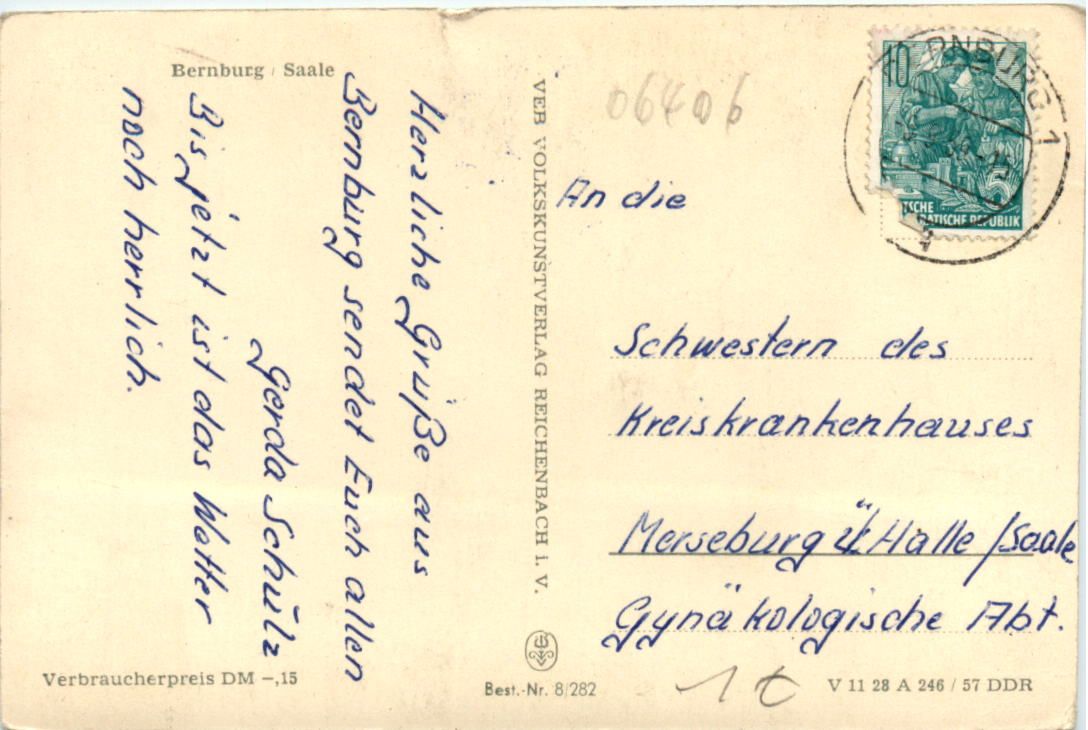 Bernburg / Saale
Herzliche Grüße aus
Bernburg sendet Euch allen
Gerda Schulz
Bis jetzt ist das Wetter
noch herrlich.
Verbraucherpreis DM –,15
VEB VOLKSKUNSTVERLAG REICHENBACH i. V.
Best.-Nr. 8/282
06406
10
TSCHE
ATISCHE REPUBLIK
An die
Schwestern des
Kreiskrankenhauses
Merseburg ü/Halle/Saale
Gynäkologische Abt.
1 €
V 11 28 A 246 / 57 DDR